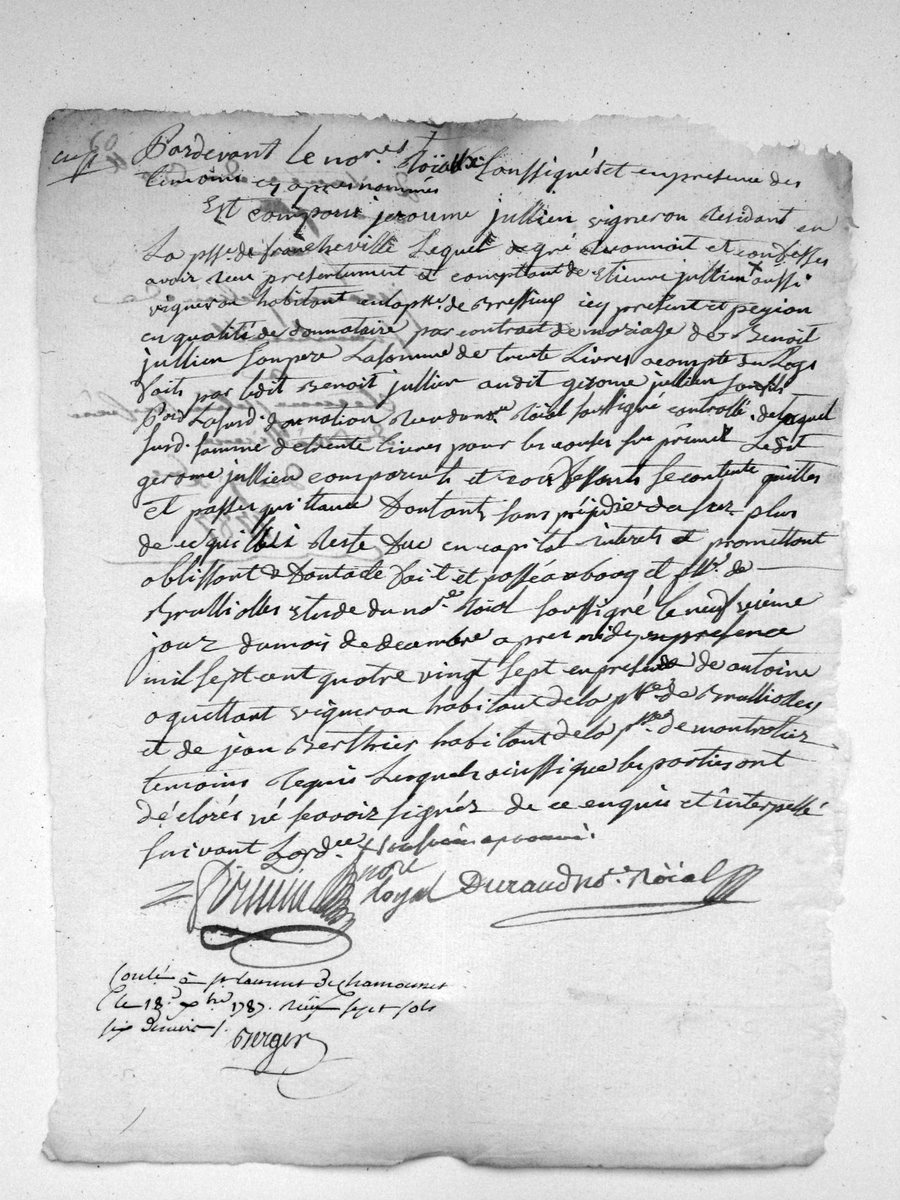 60
Pardevant Le no.res Roïaux Soussignés et en presence des
temoins cy apres nommés
Est comparu jeroume jullien vigneron Residant en
La psse de francheville Lequel de gré Reconnoit et confesses
avoir Reçu presentement et comptant de Etienne jullien aussi
vigneron habitant en la psse de Bressieus icy present et
en qualité de donnataire par contrat de mariage de Benoit
jullien son pere La somme de trente Livres a compte du Legs
faits par ledit Benoit jullien audit gerome jullien son fils
Par La susd. donnation Roial soussigné controllé. de laquel
susd. somme de trente Livres pour les causes Ledit
gerome jullien comparents et confessants se contente quittes
et passes quittance D'autant sans prejudice plus
de ce qui lui Reste Due en capital interets et promettant
oblissant & Dont acte fait et passé au bourg et psse de
Brulliolles Etude du no.re Roial soussigné le neuf vieme
jour du mois de decembre apres midy
mil sept cent quatre vingt sept en presence de antoine
aquettant vigneron habitant de la psse de Brulliolles
et de jean Berthier habitant de la psse de montrotier
temoins Requis Lesquels ainssi que les parties ont
déclorés né sçavoir signér de ce enquis et interpellé
suivant Lord.ce
nore royal Durand no.re Roïal
Conlé à st Laurent De Chamousset
Le 18.e Xbre 1787. Reçu sept sols
six deniers
Berger